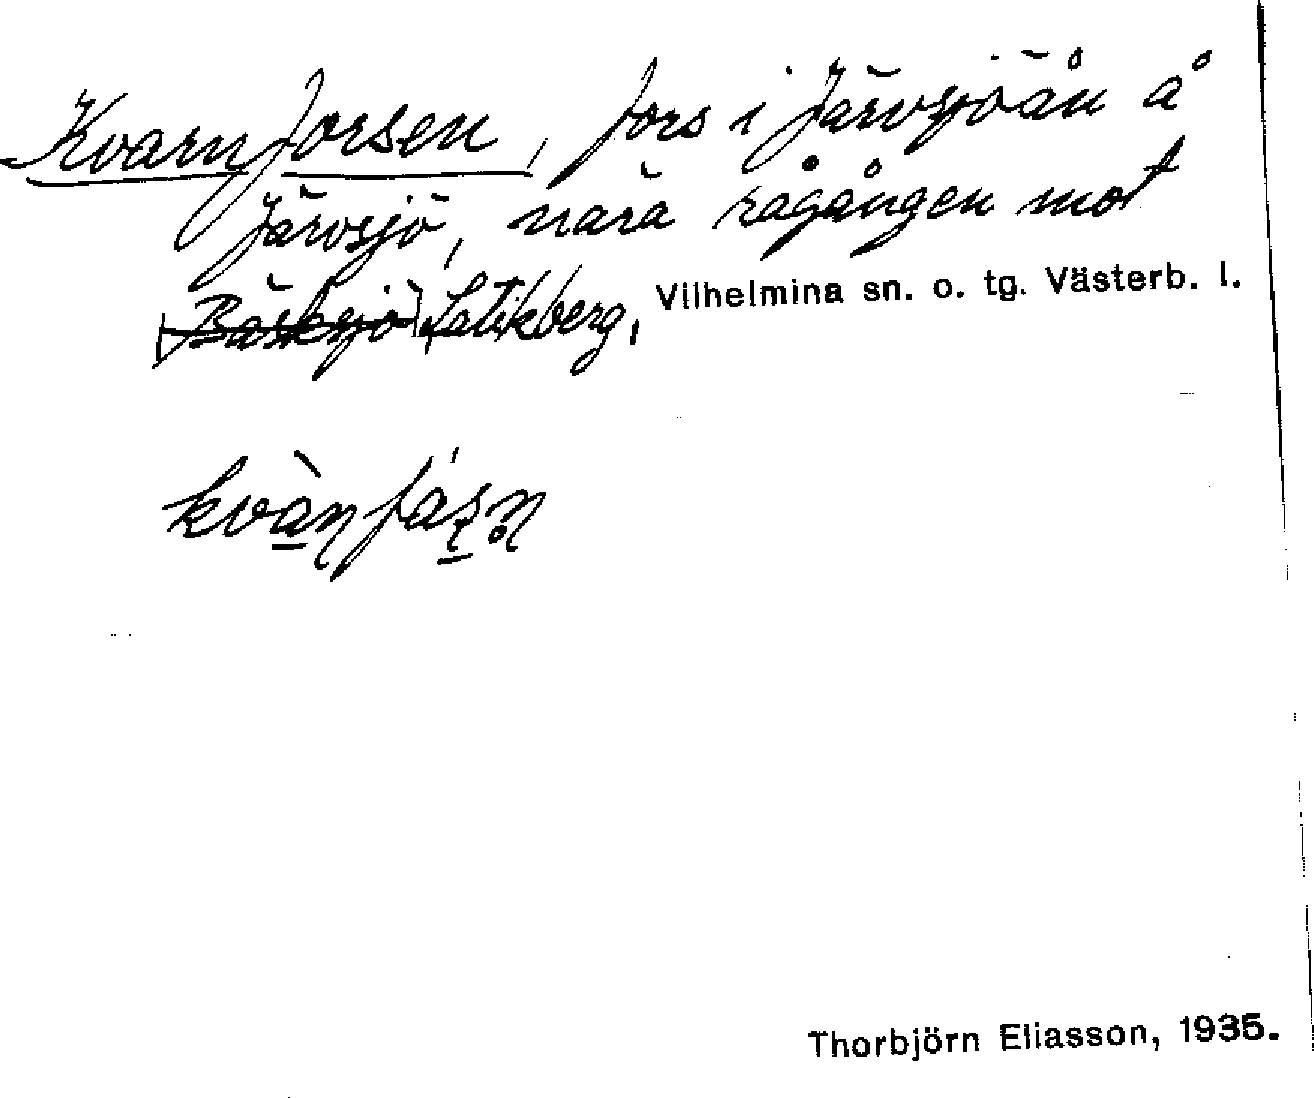 Kvarnforsen, fors i Järvsjöån å
Järvsjö, nära rågången mot
Bäsksjö Latikberg, Vilhelmina sn. o. tg. Västerb. l.
Thorbjörn Eliasson, 1935.